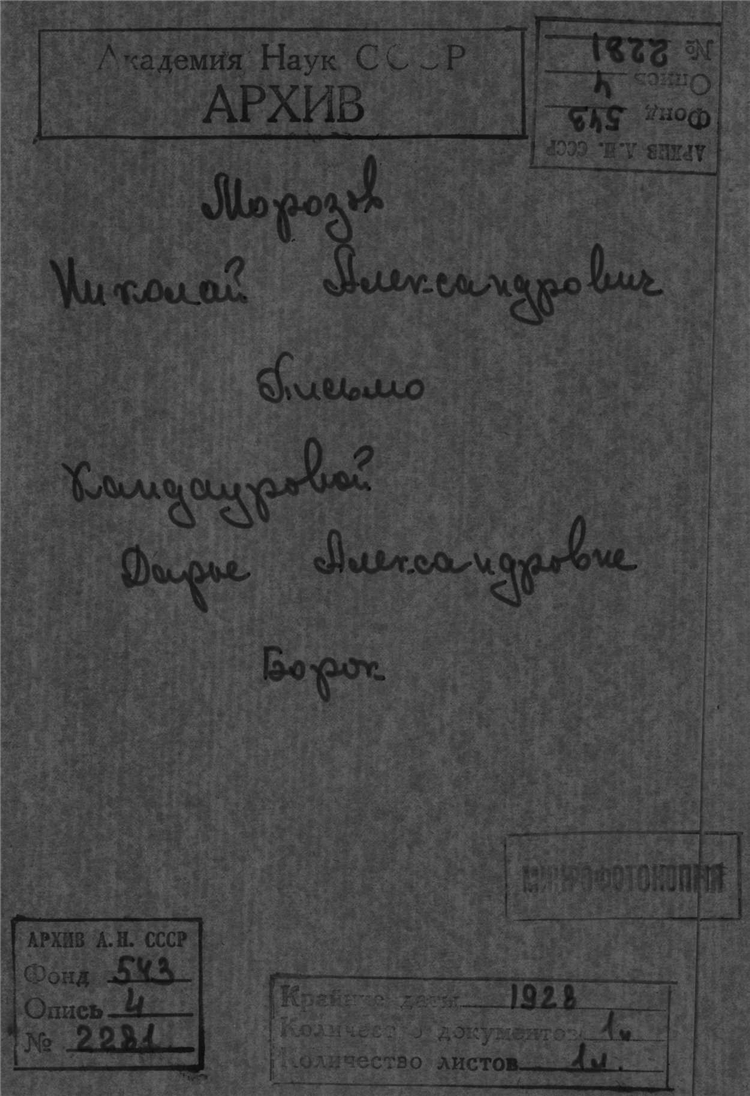 Академия Наук СССР
АРХИВ
№ 2281
Опись 4
Фонд 543
АРХИВ А.Н. СССР
Морозов
Николай Александрович
Письмо
Кандауровой
Дарье Александровне
Борок
МИКРОФОТОКОПИЯ
АРХИВ А.Н. СССР
Фонд 543
Опись 4
№ 2281
Крайние даты 1928
Количество документов 1
Количество листов 1 л.